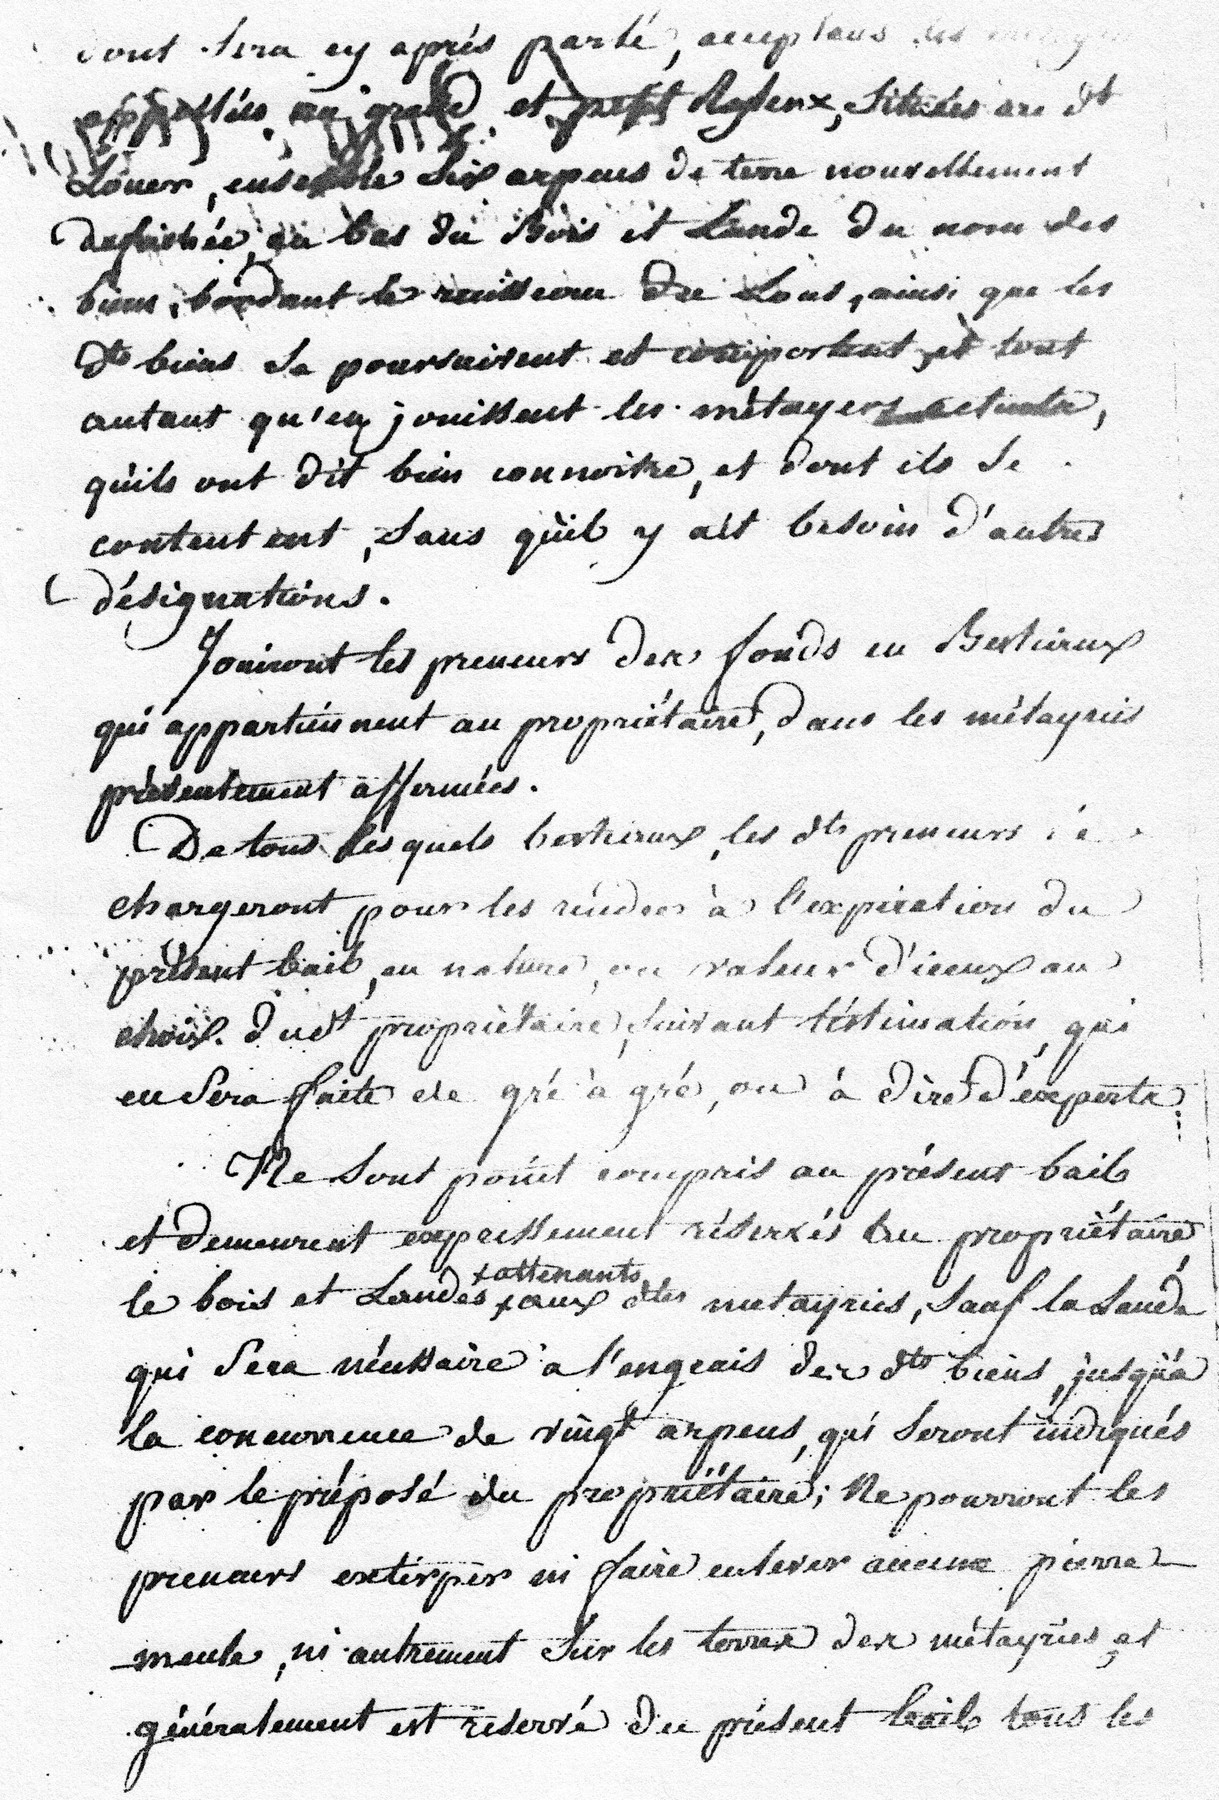 dont sera cy aprés parlé, acceptans les
appellées grand et petit situées au dt
Loüer, ensemble six arpens de terre nouvellement
defrichée, au bas du Bois et Lande du nom des
biens, bordant le ruisseau de Lous, ainsi que les
dts biens se poursuivent et comportent, et tout
autant qu'en jouissent les métayers actuels,
qu'ils ont dit bien connoitre, et dont ils se
contentent, sans qu'il y ait besoin d'autres
désignations.
Jouiront les preneurs des fonds en Bestiaux
qui appartiennent au propriétaire, dans les métayries
présentement affermées.
De tous lesquels bestiaux, les dts preneurs se
chargeront pour les rendre à l'expiration du
présent bail, en nature, ou valeur d'iceux au
choix dudt propriétaire, suivant l'éstimation, qui
en sera faite de gré à gré, ou à dire d'éxperts.
Ne sont point compris au présent bail
et demeurent expressement réservés au propriétaire,
le bois et Landes +attenants +aux dtes metayries, sauf la Lande
qui sera nécessaire à l'engrais des dts biens, jusqu'à
la concurrence de vingt arpens, qui seront indiqués
par le préposé du propriétaire; Ne pourront les
preneurs extirper ni faire enlever aucune pierre
meule, ni autrement sur les terres des métayries, et
généralement est reservé du présent bail tous les